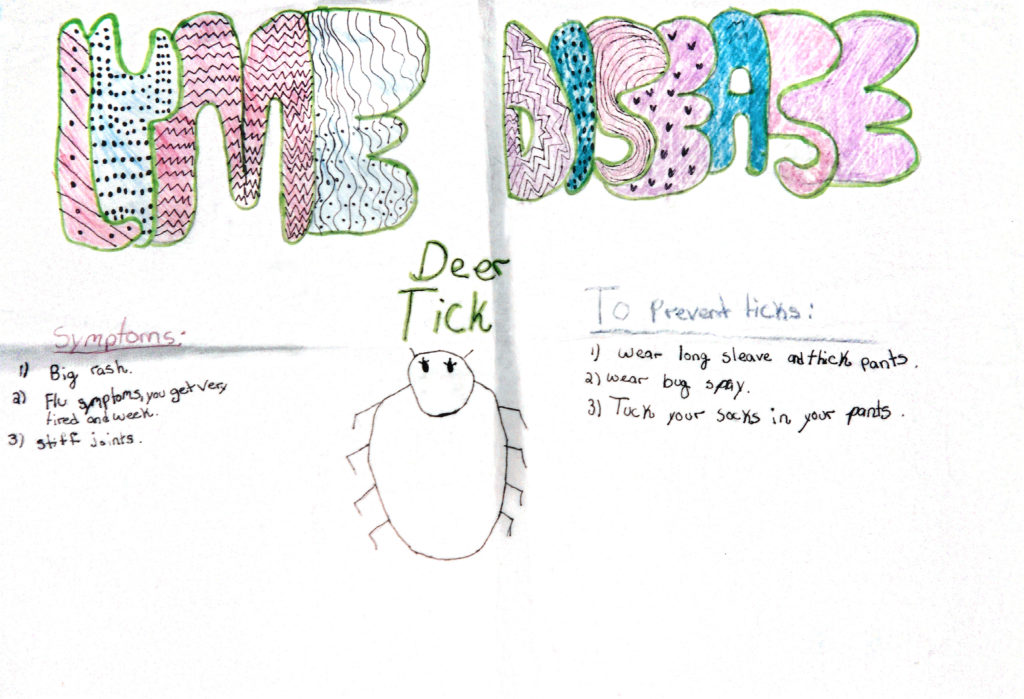 LYME DISEASE
Deer
Tick
Symptoms:
1) Big rash.
2) Flu symptoms, you get very
tired and week.
3) stiff joints.
To Prevent ticks:
1) wear long sleave and thick pants.
2) wear bug spray.
3) Tuck your socks in your pants.